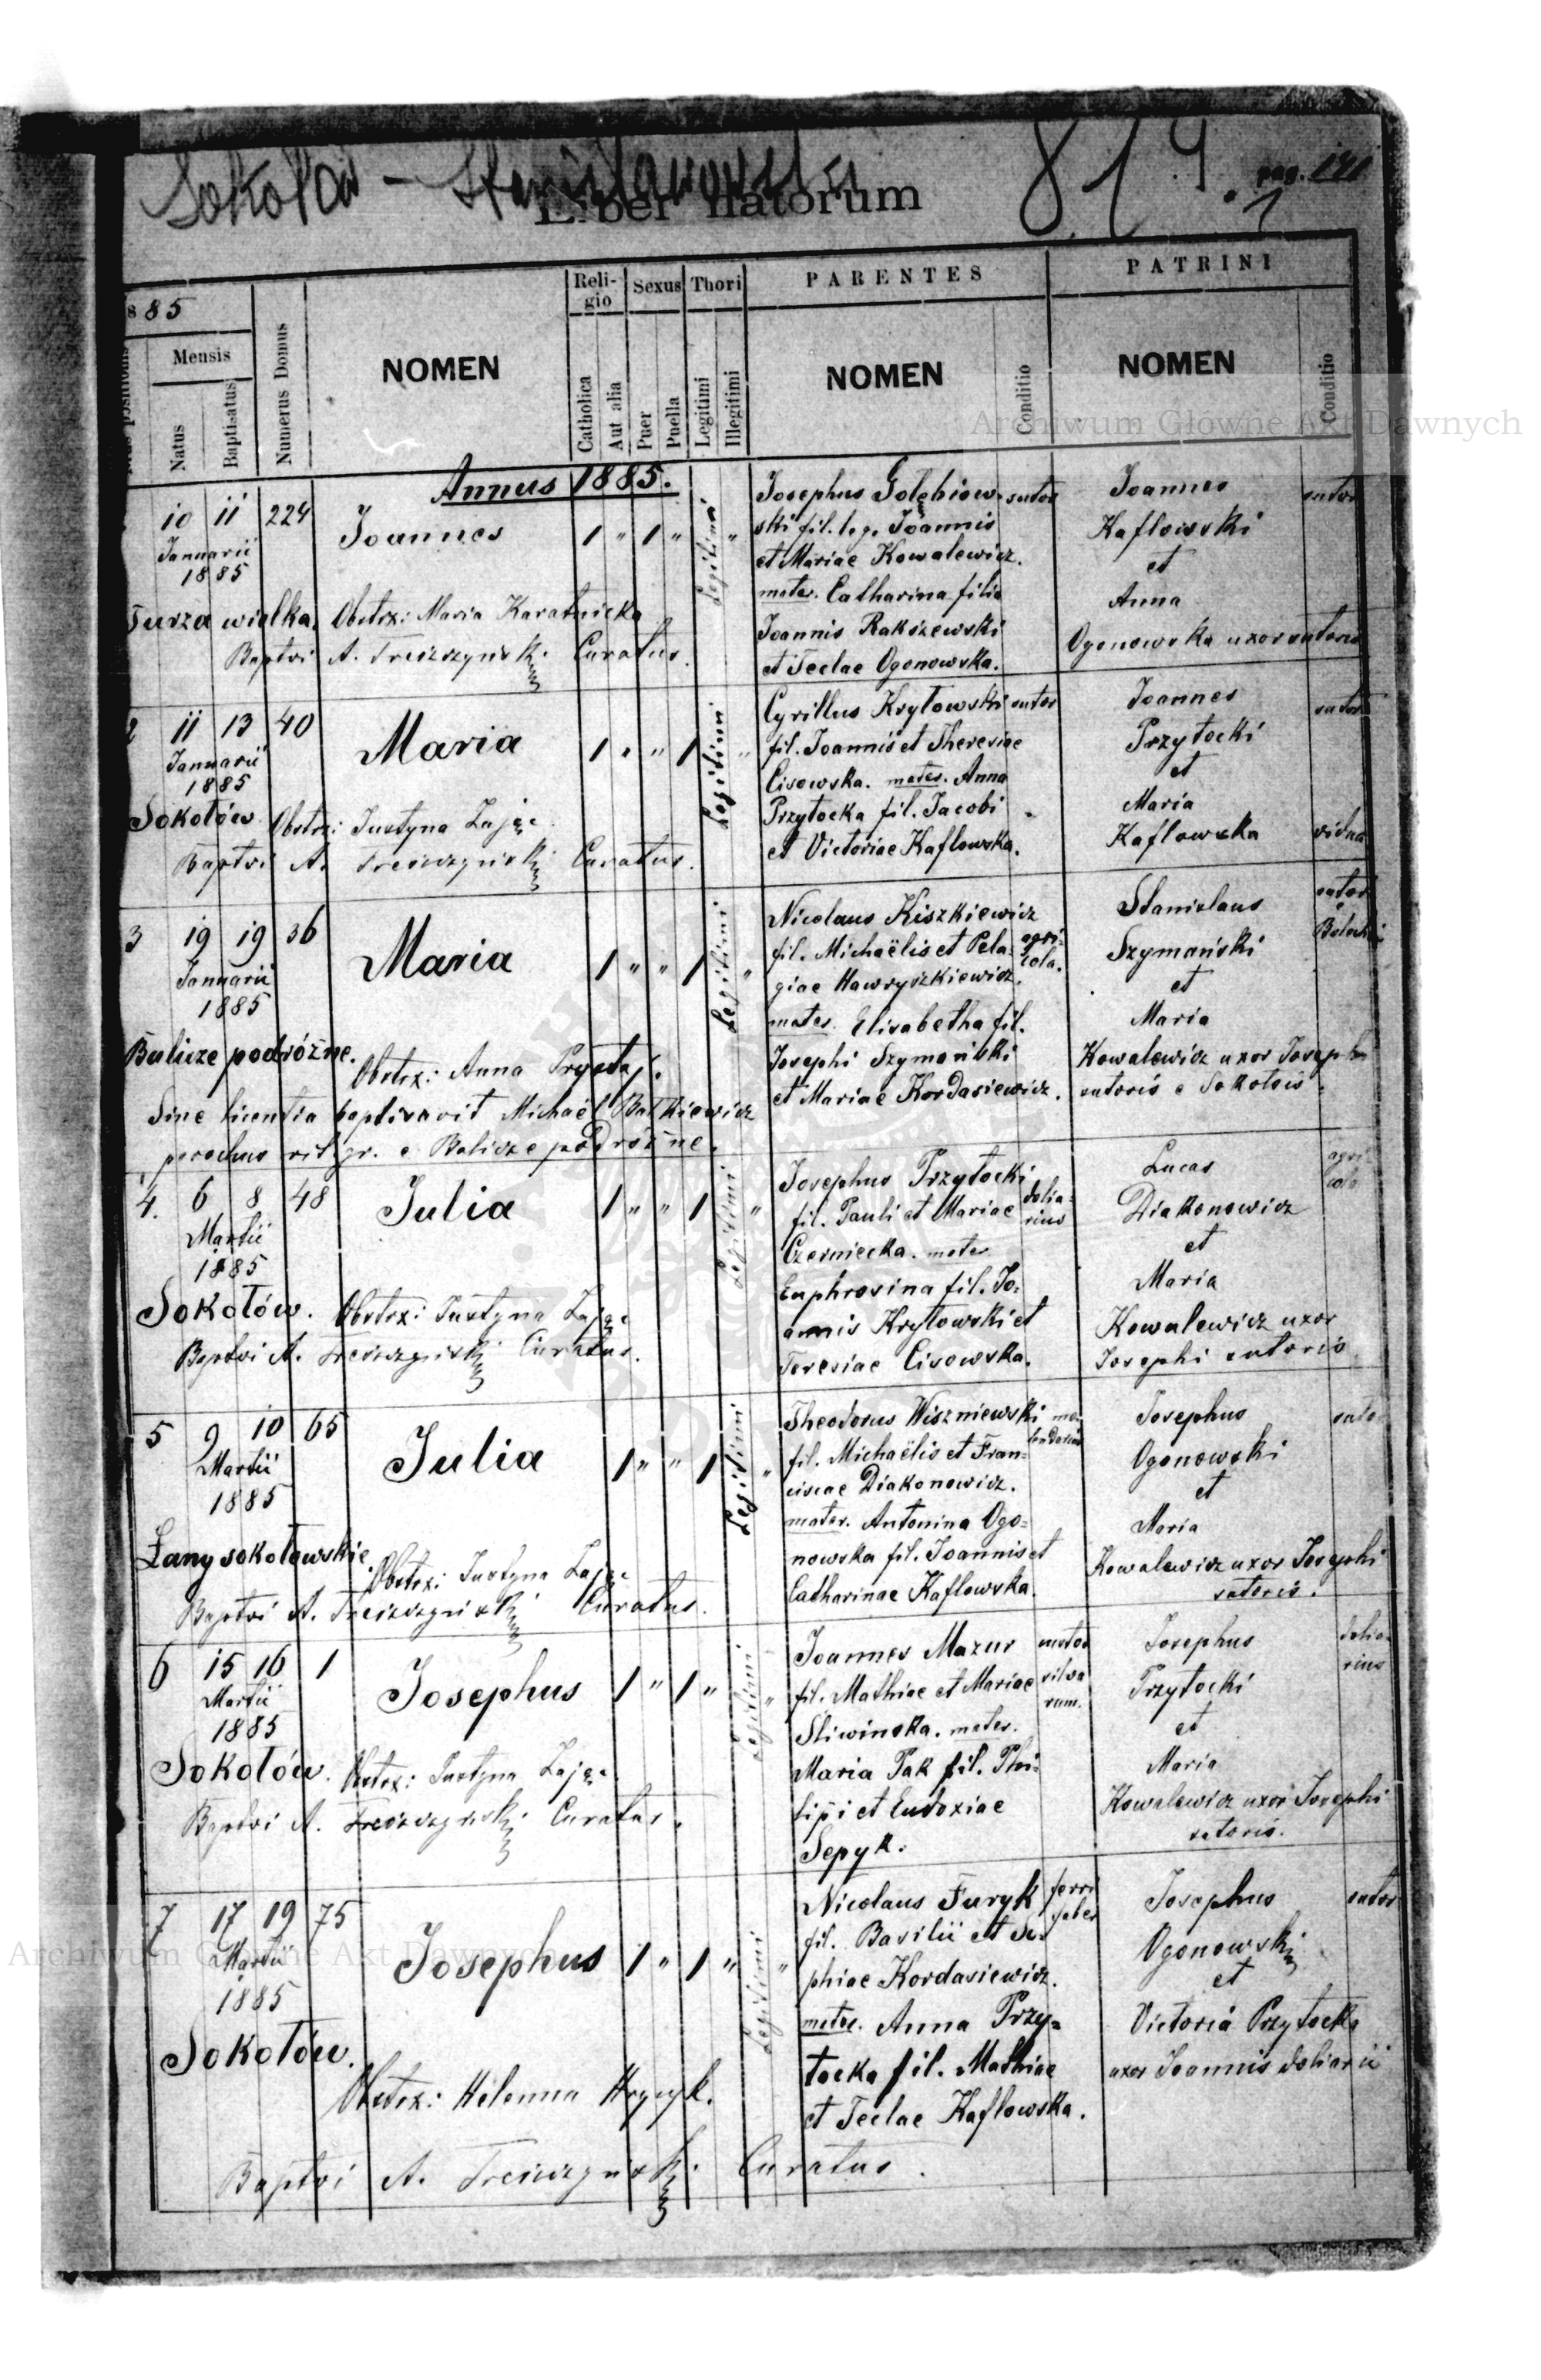 Sokołów - Stanisławowska 819.
pag. 141
1
Liber natorum
s 85
Mensis
positionis
Natus
Baptisatus
Numerus Domus
NOMEN
Reli-
gio
Catholica
Aut alia
Sexus
Puer
Puella
Thori
Legitimi
Illegitimi
PARENTES
NOMEN
Conditio
PATRINI
NOMEN
Conditio
Archiwum Główne Akt Dawnych
Annus 1885.
10 11 224
Januarii
1885
Joannes
1 " 1 " Legitimi "
Turza wielka. Obstrx: Maria Karatnicka
Baptvi A. Treszczyński Curatus.
Josephus Gołębiow- sutor
ski fil. leg. Joannis
et Mariae Kowalewicz.
mater. Catharina filia
Joannis Rakszewski
et Teclae Ogonowska.
Joannes sutor
Kaflowski
et
Anna
Ogonowska uxor sutoris
2 11 13 40
Januarii
1885
Maria
1 " " 1 Legitimi "
Sokołów Obstrx: Justyna Zając
Baptvi A. Treszczyński Curatus.
Cyrillus Krytowski sutor
fil. Joannis et Theresiae
Cisowska. mater. Anna
Przytocka fil. Jacobi
et Victoriae Kaflowska.
Joannes sutor
Przytocki
et
Maria
Kaflowska vidua
3 19 19 36
Januarii
1885
Maria
1 " " 1 Legitimi "
Balicze podróżne.
Obstrx: Anna Prystaj.
Sine licentia baptisavit Michaël Batkiewicz
parochus rit. gr. e Balicze podróżne.
Nicolaus Kiszkiewicz
fil. Michaëlis et Pela- agri-
giae Hawryszkiewicz. cola.
mater. Elisabetha fil.
Josephi Szymański
et Mariae Kordasiewicz.
Stanislaus sutor
Szymański
et
Maria
Kowalewicz uxor Josephi
sutoris e Sokołów.
4. 6 8 48
Martii
1885
Julia
1 " " 1 Legitimi "
Sokołów. Obstrx: Justyna Zając
Baptvi A. Treszczyński Curatus.
Josephus Przytocki dolia-
fil. Pauli et Mariae rius
Czerniecka. mater
Euphrosina fil. Jo-
annis Krytowski et
Teresiae Cisowska.
Lucas agri-
cola
Diakonowicz
et
Maria
Kowalewicz uxor
Josephi sutoris
5 9 10 65
Martii
1885
Julia
1 " " 1 Legitimi "
Łany sokołowskie
Obstrx: Justyna Zając
Baptvi A. Treszczyński Curatus.
Theodorus Wiszniewski
fil. Michaëlis et Fran-
ciscae Diakonowicz.
mater. Antonina Ogo-
nowska fil. Joannis et
Catharinae Kaflowska.
Josephus sutor
Ogonowski
et
Maria
Kowalewicz uxor Josephi
sutoris.
6 15 16 1
Martii
1885
Josephus
1 " 1 " Legitimi "
Sokołów. Obstrx: Justyna Zając
Baptvi A. Treszczyński Curatus.
Joannes Mazur
fil. Mathiae et Mariae silva
Sliwinska. mater. rum.
Maria Pak fil. Phi-
lipi et Eudoxiae
Sepyk.
Josephus dolia-
rius
Przytocki
et
Maria
Kowalewicz uxor Josephi
sutoris.
7 17 19 75
Martii
1885
Josephus
1 " 1 " Legitimi "
Sokołów.
Obstrx: Helenna Hrycyk.
Baptvi A. Treszczyński Curatus.
Nicolaus Furyk ferri
fil. Basilii et So- faber
phiae Kordasiewicz.
mater. Anna Przy-
tocka fil. Mathiae
et Teclae Kaflowska.
Josephus sutor
Ogonowski
et
Victoria Przytocka
uxor Joannis doliarii
Archiwum Główne Akt Dawnych